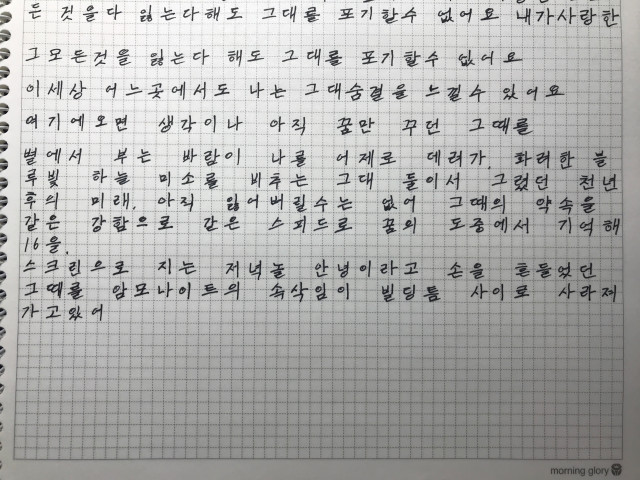 든 것을다 잃는다해도 그대를 포기할수 없어요 내가사랑한
그모든것을 잃는다 해도 그대를 포기할수 없어요
이세상 어느곳에서도 나는 그대숨결을 느낄수 있어요
여기에오면 생각이나 아직 꿈만 꾸던 그때를
별에서 부는 바람이 나를 어제로 데려가. 화려한 블
루빛 하늘 미소를 비추는 그대 둘이서 그렸던 천년
후의 미래. 아직 잃어버릴수는 없어 그때의 약속을
같은 강함으로 같은 스피드로 꿈의 도중에서 기억해
16을.
스크린으로 지는 저녁놀 안녕이라고 손을 흔들었던
그때를 암모나이트의 속삭임이 빌딩틈 사이로 사라져
가고있어
morning glory